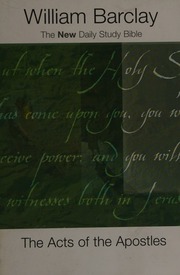 William Barclay
The New Daily Study Bible
but when the Holy S
has come upon you, you w
ceive power; and you will
witnesses both in Jerus
The Acts of the Apostles